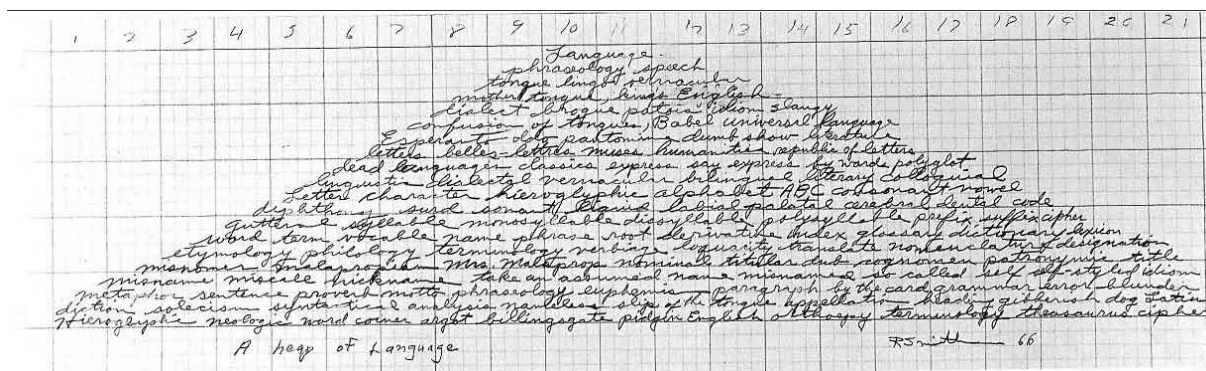 1 2 3 4 5 6 7 8 9 10 11 12 13 14 15 16 17 18 19 20 21
Language.
phraseology speech
tongue lingo vernacular
mother tongue, kings English
dialect brogue patois idiom slangy
confusion of tongues, Babel universal language
Esperanto dog pantomime dumb show literature
letters belles-lettres muses humanities republic of letters
dead language classics express say express by words polyglot
linguistic dialectal vernacular bilingual literary colloquial
letters character hieroglyphic alphabet ABC consonant vowel
diphthong surd sonant liquid labial palatal cerebral dental code
guttural syllable monosyllable dissyllable polysyllable prefix suffix cipher
word term vocable name phrase root derivative index glossary dictionary lexicon
etymology philology terminology verbiage loquacity translate nomenclature designation
misnomer malapropism Mrs. Malaprop nominal titular dub cognomen patronymic title
misname miscall nickname take an assumed name misnamed so called self self-styled idiom
metaphor sentence proverb motto phraseology euphemis paragraph by the card grammar error blunder
diction solecism syntactical analysis nameless slip of the tongue appellation heading gibberish dog Latin
Hieroglyphic neologic word coiner argot billingsgate pidgin English orthoepy terminology thesaurus cipher
A heap of Language
RSmith 66